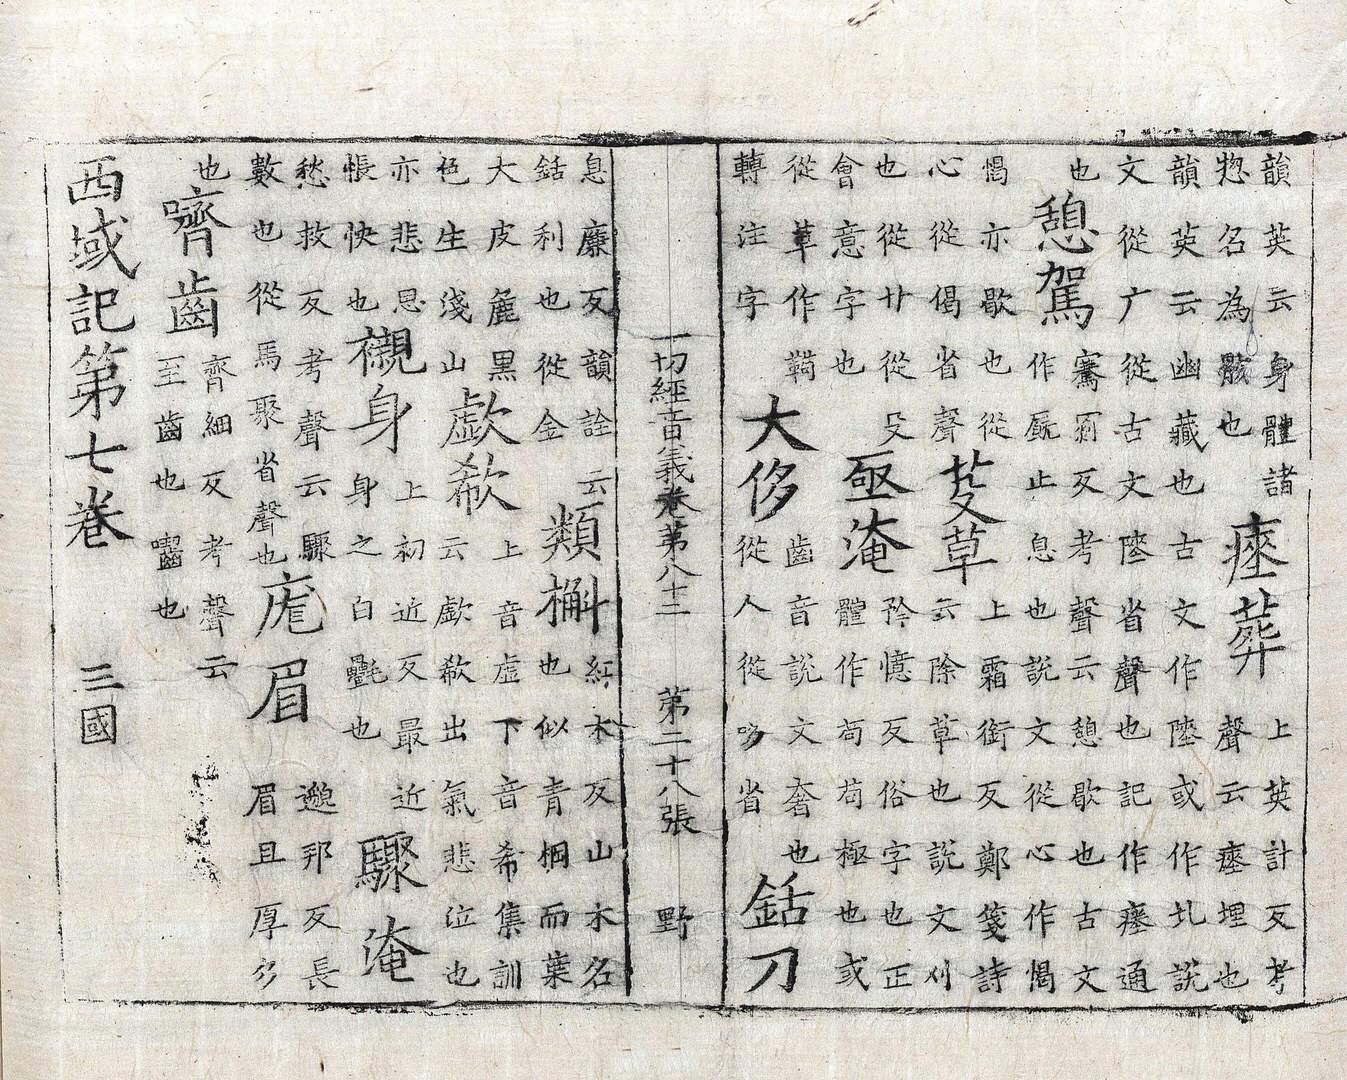 韻英云身體諸
惣名為骸也
瘞葬
上英計反考
聲云瘞埋也
韻英云幽藏也古文作𡍨或作圠說
文從广從古文𡍨省聲也記作瘞通
也
憩駕
騫罽反考聲云憩歇也古文
作𠪚止息也說文從心作愒
愒亦歇也從
心從偈省聲
芟草
上霜銜反鄭箋詩
云除草也說文刈
也從廾從殳
會意字也
亟淹
矜憶反俗字也正
體作茍茍極也或
從革作鞫
轉注字
大侈
齒音說文奢也
從人從哆省
銛刀
一切經音義卷第八十二 第二十八張 野
息廉反韻詮云
銛利也從金
類槲
紅木反山木名
也似青棡而葉
大皮麁黑
色生淺山
歔欷
上音虛下音希集訓
云歔欷出氣悲泣也
亦悲恩也
悵怏也
襯身
上初近反最近
身之白氎也
驟淹
愁救反考聲云驟
數也從馬聚省聲也
庬眉
邈邦反長
眉且厚皃
也
嚌齒
齊細反考聲云
至齒也囓也
西域記第七卷 三國